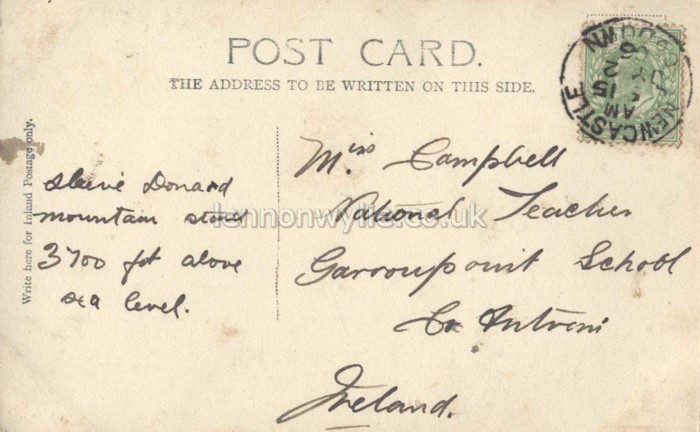 POST CARD.
THE ADDRESS TO BE WRITTEN ON THIS SIDE.
Write here for Inland Postage only.
Slieve Donard
mountain stands
3700 ft above
sea level.
Miss Campbell
National Teacher
School
Co Antrim
Ireland.
NEWCASTLE
CO DOWN
AM
15
lennonwylie.co.uk